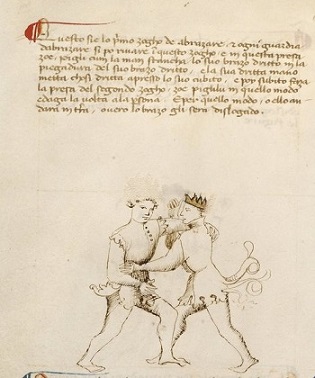 Questo sie lo primo zogho de abrazare, e ogni guardia
d'abrazare si po rivare in questo zogho, e in questa presa
zoe, pigli cum la man stancha lo suo brazo dritto in la
piegadura del suo brazo dritto, e la sua dritta mano
metta chosi dritta apresso lo suo cubito, e poy subito faza
la presa del segondo zogho, zoe piglilu in quello modo
e daga la volta ala persona. E per quello modo, o ello an-
dara in terra, overo lo brazo gli sera dislogado.